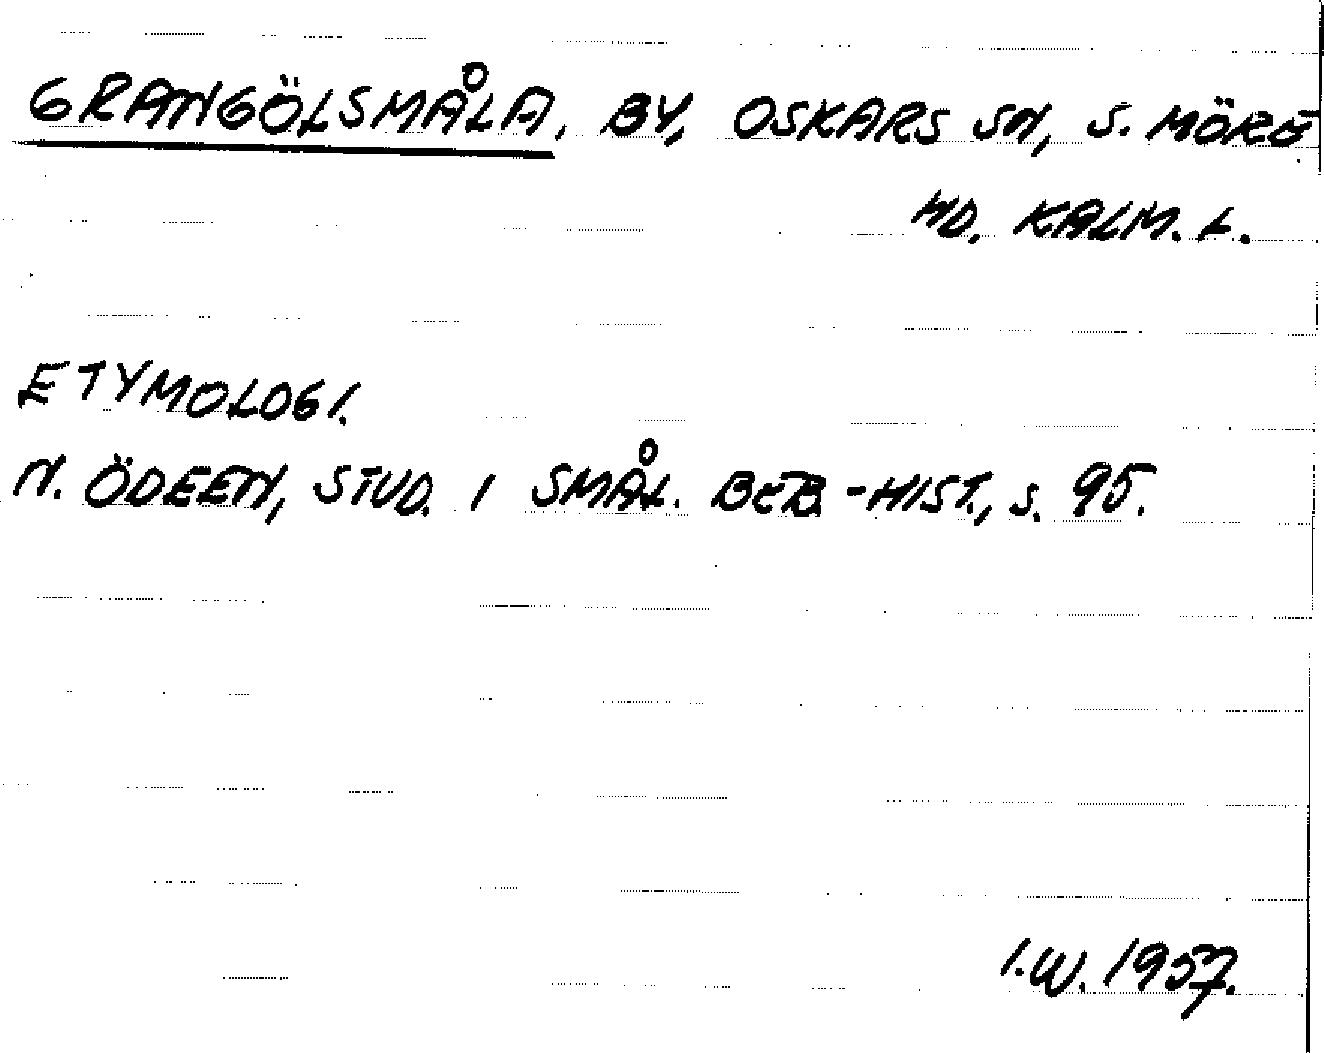 GRANGÖLSMÅLA, BY, OSKARS SN, S. MÖRE
HD. KALM. L.
ETYMOLOGI.
N. ÖDEEN, STUD. I SMÅL. BEB.-HIST., S. 95.
I.W. 1957.